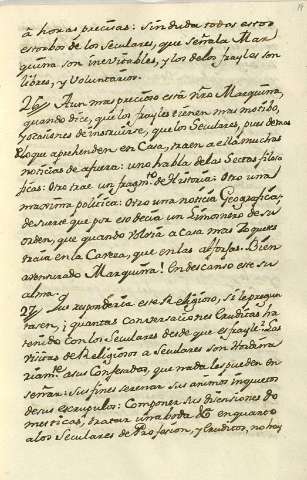 à horas precisas: sin duda todos estos
estorbos de los Seculares, que señala Mar
quina son inevitables, y los de los frayles son
libres, y Voluntarios.
26 Aun mas precioso está nro Marquina,
quando dice, que los frayles tienen mas motibo,
y ocasiones de instruirse, que los Seculares, pues demas
de lo que aprehenden en Casa, traen a ella muchas
noticias de afuera: uno habla de las Sectas filoso
ficas: Otro trae un fragmto de Historia: Otro una
maxima politica: Otro una noticia Geografica;
de suerte que por eso decia un Limosnero de su
orden, que quando volvia a Casa mas Zoquetes
traia en la Caveza, que en las alforjas. Bien
aventurado Marquina! En descanso este su
alma.
27 Que responderia este Religioso, si le pregun
tasen, ¿quantas conversaciones eruditas ha
tenido con los Seculares desde que es frayle? Las
visitas de Religiosos a Seculares son
a sus Confesados, que nada les pueden en
señar: sus fines serenar sus animos inquietos
de sus escrupulos: Componer sus disensiones do
mesticas, tratar una boda &c en quanto
a los Seculares de Profesion, y Eruditos, no hay